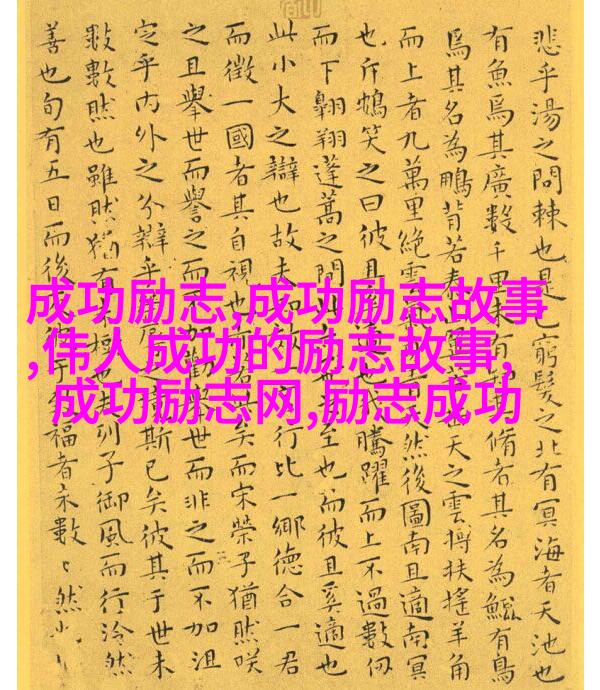 悲乎湯之問棘也是已窮髮之北有冥海者天池也
有魚焉其廣數千里未有其脩者其名為鯤有鳥
焉其名為鵬背若泰天之雲摶扶搖羊角
而上者九萬里絕雲然後圖南且適南冥
也斥鴳笑之曰彼且騰躍而上不過數仞
而下翱翔蓬蒿之間至也而彼且奚適也
此小大之辯也故夫行比一鄉德合一君
而徵一國者其自視也矣而宋榮子猶然咲
之且舉世而譽之而不加勸舉世而非之而不加沮
定乎內外之分辯乎斯已矣彼其于世未
數數然也雖然猶有未列子御風而行泠然
善也旬有五日而後于福者未數々然
成功励志,成功励志故事
,伟人成功的励志故事,
成功励志网,励志成功